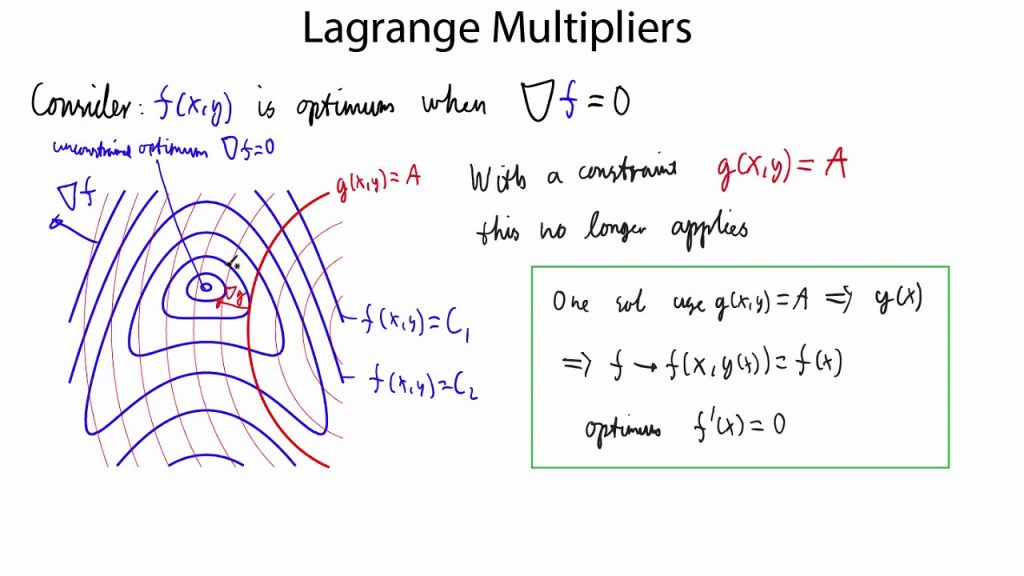 Lagrange Multipliers
Consider: f(x,y) is optimum when ∇f = 0
unconstrained optimum ∇f=0
∇f
g(x,y) = A
With a constraint g(x,y) = A
this no longer applies
∇g
f(x,y) = C₁
f(x,y) = C₂
One sol use g(x,y) = A ⇒ y(x)
⇒ f → f(x, y(x)) = f(x)
optimum f'(x) = 0